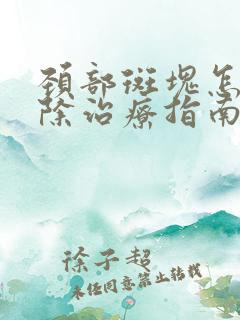 颈部斑塊怎
除治療指南
徐子超
未经同意禁止转载